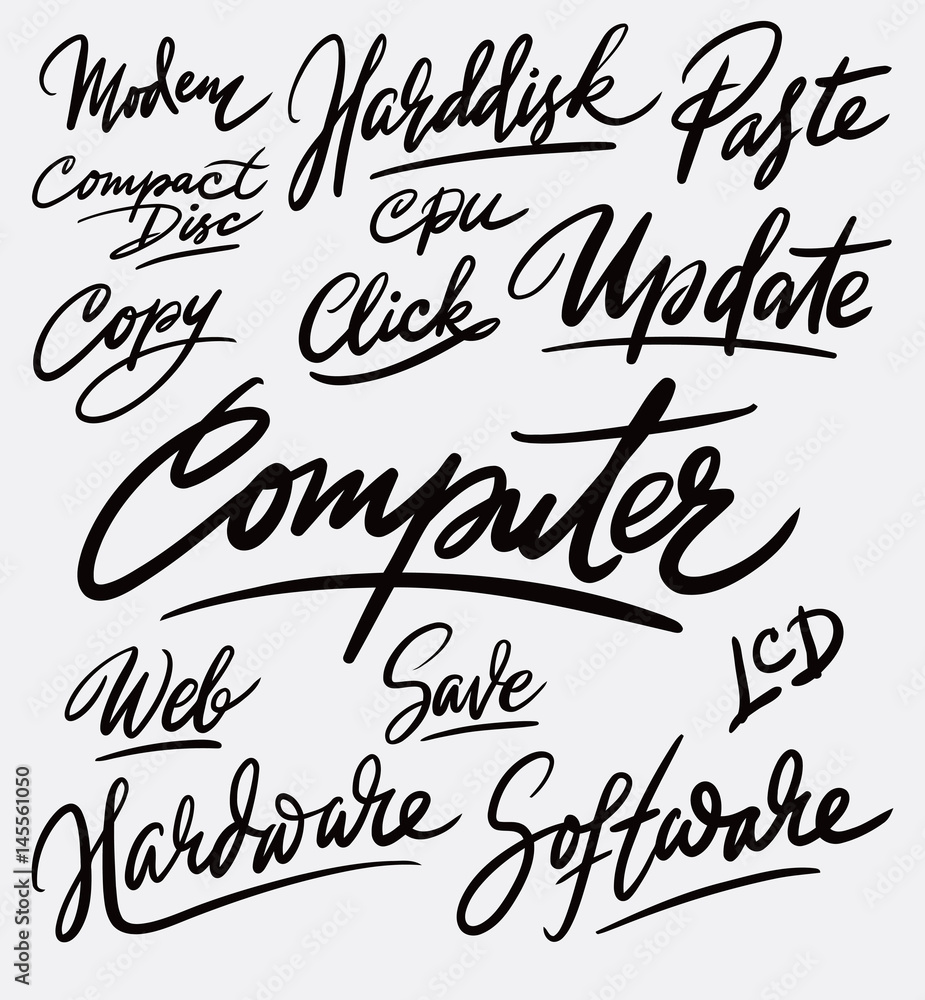 Modem
Harddisk
Paste
Compact
Disc
cpu
Update
Copy
Click
Computer
Web
Save
LCD
Hardware
Software
Adobe Stock | #145561050